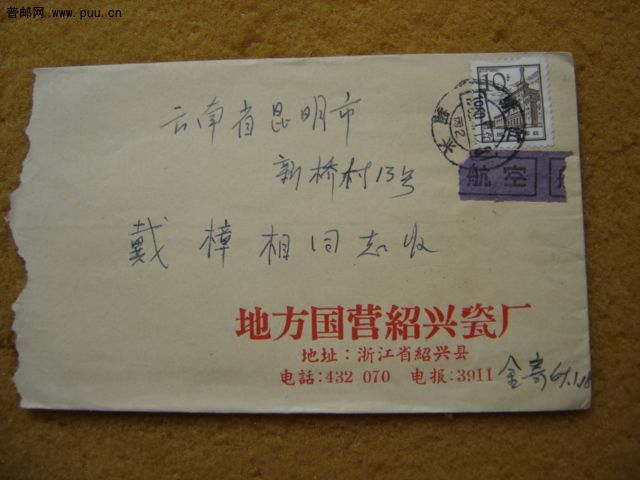 普邮网 www.puu.cn
10分
航空
云南省昆明市
新桥村13号
戴樟相同志收
地方国营紹兴瓷厂
地址：浙江省紹兴县
电話：432 070 电报：3911
金寄